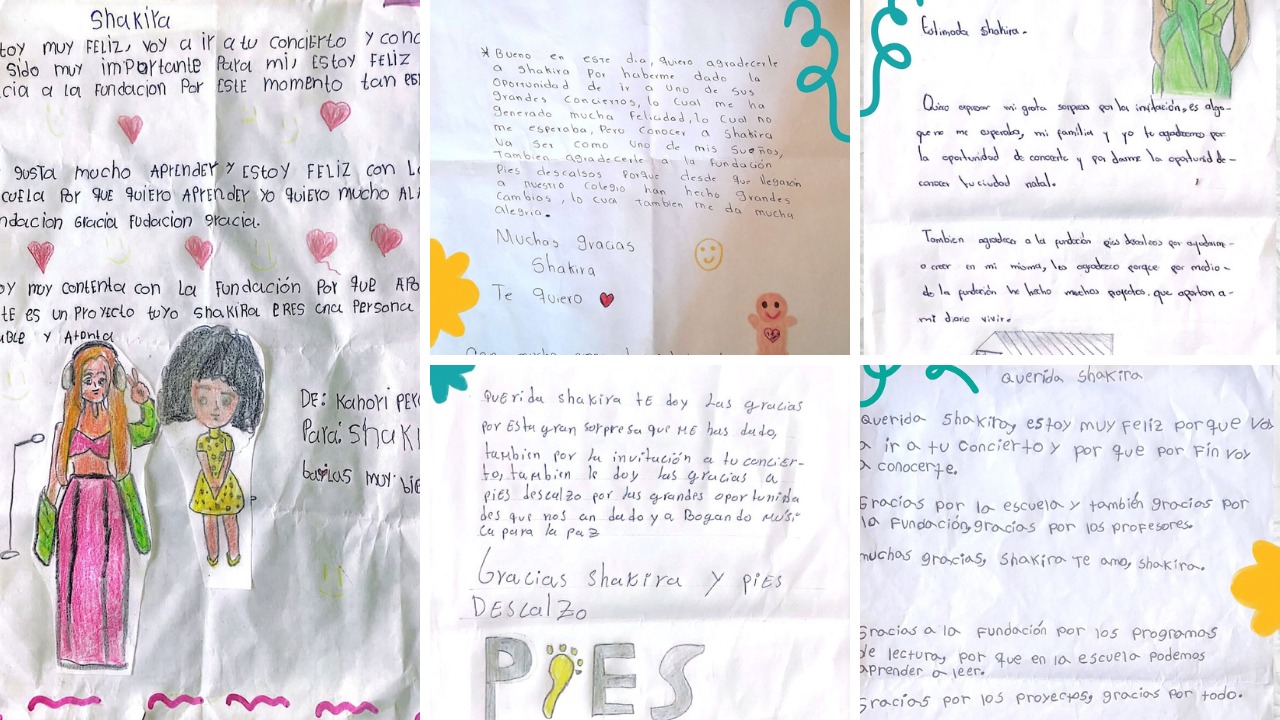 Shakira
toy muy FELIZ, voy a ir a tu concierto y cono
sido muy importante para mi, ESTOY FELIZ
cia a la Fundacion por ESTE momento tan esp
gusta mucho APrENDER Y ESTOY FELIZ con La
cuela por que quiero APrENDEr yo quiero mucho ALA
ndacion Gracia Fudacion gracia.
oy muy contenta con La Fundación Por que APO
TE es un Proyecto tuyo shakira ERES una Persona
able y Atenta
DE: Kahori PER
Para: Shaki
bailas muy bie
* Bueno en este dia, quiero agradecerle
a shakira por haberme dado la
oportunidad de ir a uno de sus
grandes conciertos, lo cual me ha
generado mucha felicidad, lo cual no
me esperaba, Pero conocer a Shakira
va ser como uno de mis sueños,
Tambien agradecerle a la fundación
Pies descalsos Porque desde que llegarón
a nuestro colegio han hecho grandes
cambios, lo cual tambien me da mucha
alegria.
Muchas gracias
Shakira
Te quiero
Estimada shakira.
Quiero expresar mi grata sorpresa por la invitación, es algo-
que no me esperaba, mi familia y yo te agradecemos por
la oportunidad de conocerte y por darme la oportunidad de-
conocer tu ciudad natal.
Tambien agradezco a la fundación pies descalzos por ayudarme-
a creer en mi misma, les agradezco porque por medio-
de la fundación he hecho muchos proyectos, que aportan a-
mi diario vivir.
QUERida shakira TE doy Las gracias
por Esta gran sorpresa que ME has dado,
tambien por la invitación a tu concier-
to, tambien le doy las gracias a
pies descalzo por las grandes oportunida
des que nos an dado y a Bogando Musi-
ca para la paz
Gracias shakira y piES
DEScalzo
PiES
Querida Shakira
Querida Shakira, estoy muy Feliz porque voy
a ir a tu concierto y por que por Fin voy
a conocerte.
Gracias por la escuela y también gracias por
la Fundación, gracias por los profesores.
muchas gracias, Shakira Te amo, Shakira.
Gracias a la Fundación por los programas
de lectura, por que en la escuela podemos
aprender a leer.
Gracias por los proyectos, gracias por todo.